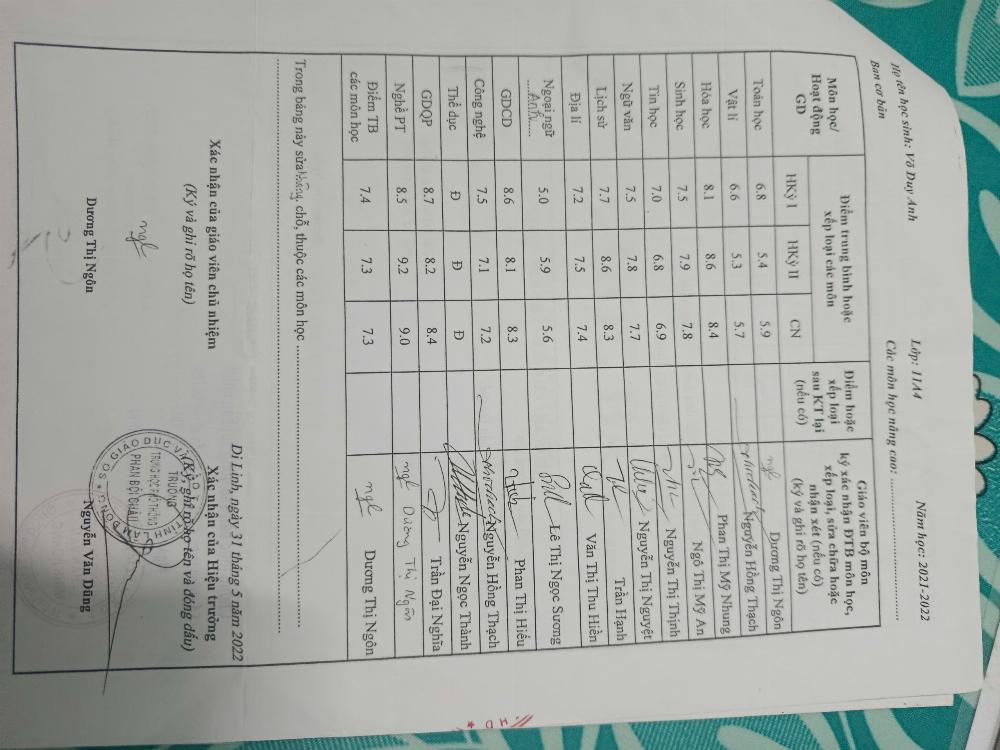 Họ tên học sinh: Võ Duy Anh Lớp: 11A4 Năm học: 2021-2022
Ban cơ bản Các môn học nâng cao: ........................
Môn học/ Hoạt động GD | Điểm trung bình hoặc xếp loại các môn | Điểm hoặc xếp loại sau KT lại (nếu có) | Giáo viên bộ môn ký xác nhận ĐTB môn học, xếp loại, sửa chữa hoặc nhận xét (nếu có) (ký và ghi rõ họ tên)
HKỳ I | HKỳ II | CN
Toán học | 6.8 | 5.4 | 5.9 | Dương Thị Ngôn
Vật lí | 6.6 | 5.3 | 5.7 | Nguyễn Hồng Thạch
Hóa học | 8.1 | 8.6 | 8.4 | Phan Thị Mỹ Nhung
Sinh học | 7.5 | 7.9 | 7.8 | Ngô Thị Mỹ An
Tin học | 7.0 | 6.8 | 6.9 | Nguyễn Thị Thịnh
Ngữ văn | 7.5 | 7.8 | 7.7 | Nguyễn Thị Nguyệt
Lịch sử | 7.7 | 8.6 | 8.3 | Trần Hạnh
Địa lí | 7.2 | 7.5 | 7.4 | Văn Thị Thu Hiền
Ngoại ngữ Anh | 5.0 | 5.9 | 5.6 | Lê Thị Ngọc Sương
GDCD | 8.6 | 8.1 | 8.3 | Phan Thị Hiếu
Công nghệ | 7.5 | 7.1 | 7.2 | Nguyễn Hồng Thạch
Thể dục | Đ | Đ | Đ | Nguyễn Ngọc Thành
GDQP | 8.7 | 8.2 | 8.4 | Trần Đại Nghĩa
Nghề PT | 8.5 | 9.2 | 9.0 | Dương Thị Ngôn
Điểm TB các môn học | 7.4 | 7.3 | 7.3 | Dương Thị Ngôn
Trong bảng này sửa không chỗ, thuộc các môn học ........................
Di Linh, ngày 31 tháng 5 năm 2022
Xác nhận của giáo viên chủ nhiệm Xác nhận của Hiệu trưởng
(Ký và ghi rõ họ tên) (Ký, ghi rõ họ tên và đóng dấu)
TRƯỜNG
TRUNG HỌC PHỔ THÔNG
PHAN BỘI CHÂU
Dương Thị Ngôn Nguyễn Văn Dũng